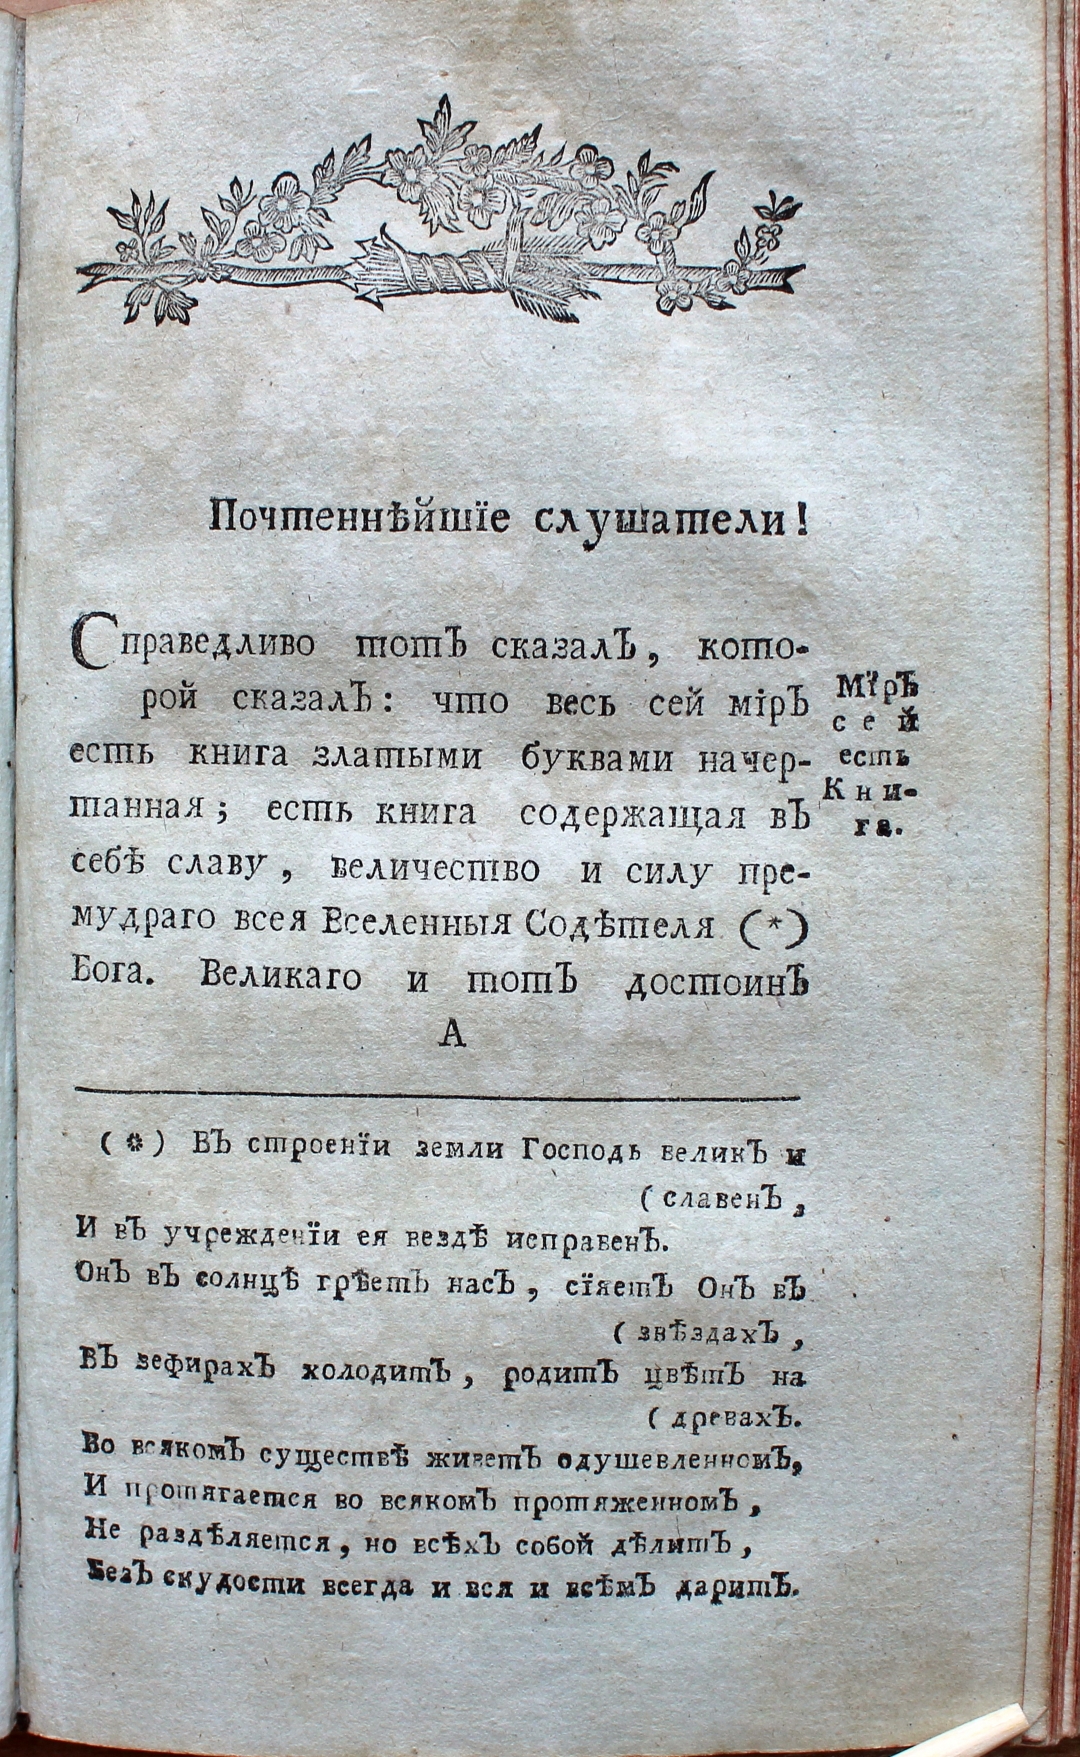 Почтеннѣйшїе слушатели!
Справедливо тотЪ сказалЪ, кото-
рой сказалЪ: что весь сей мїрЪ
есть книга златыми буквами начер-
танная; есть книга содержащая вЪ
себѣ славу, величество и силу пре-
мудраго всея Вселенныя Содѣтеля (*)
Бога. Великаго и тотЪ достоинЪ
МїрЪ
сей
есть
Кни-
га.
А
(*) ВЪ строенїи земли Господь великЪ и
(славенЪ,
И вЪ учрежденїи ея вездѣ исправенЪ.
ОнЪ вЪ солнцѣ грѣетЪ насЪ, сїяетЪ ОнЪ вЪ
(звѣздахЪ,
ВЪ зефирахЪ холодитЪ, родитЪ цвѣтЪ на
(древахЪ.
Во всякомЪ существѣ живетЪ одушевленномЪ,
И протягается во всякомЪ протяженномЪ,
Не раздѣляется, но всѣхЪ собой дѣлитЪ,
БезЪ скудости всегда и вся и всѣмЪ даритЪ.